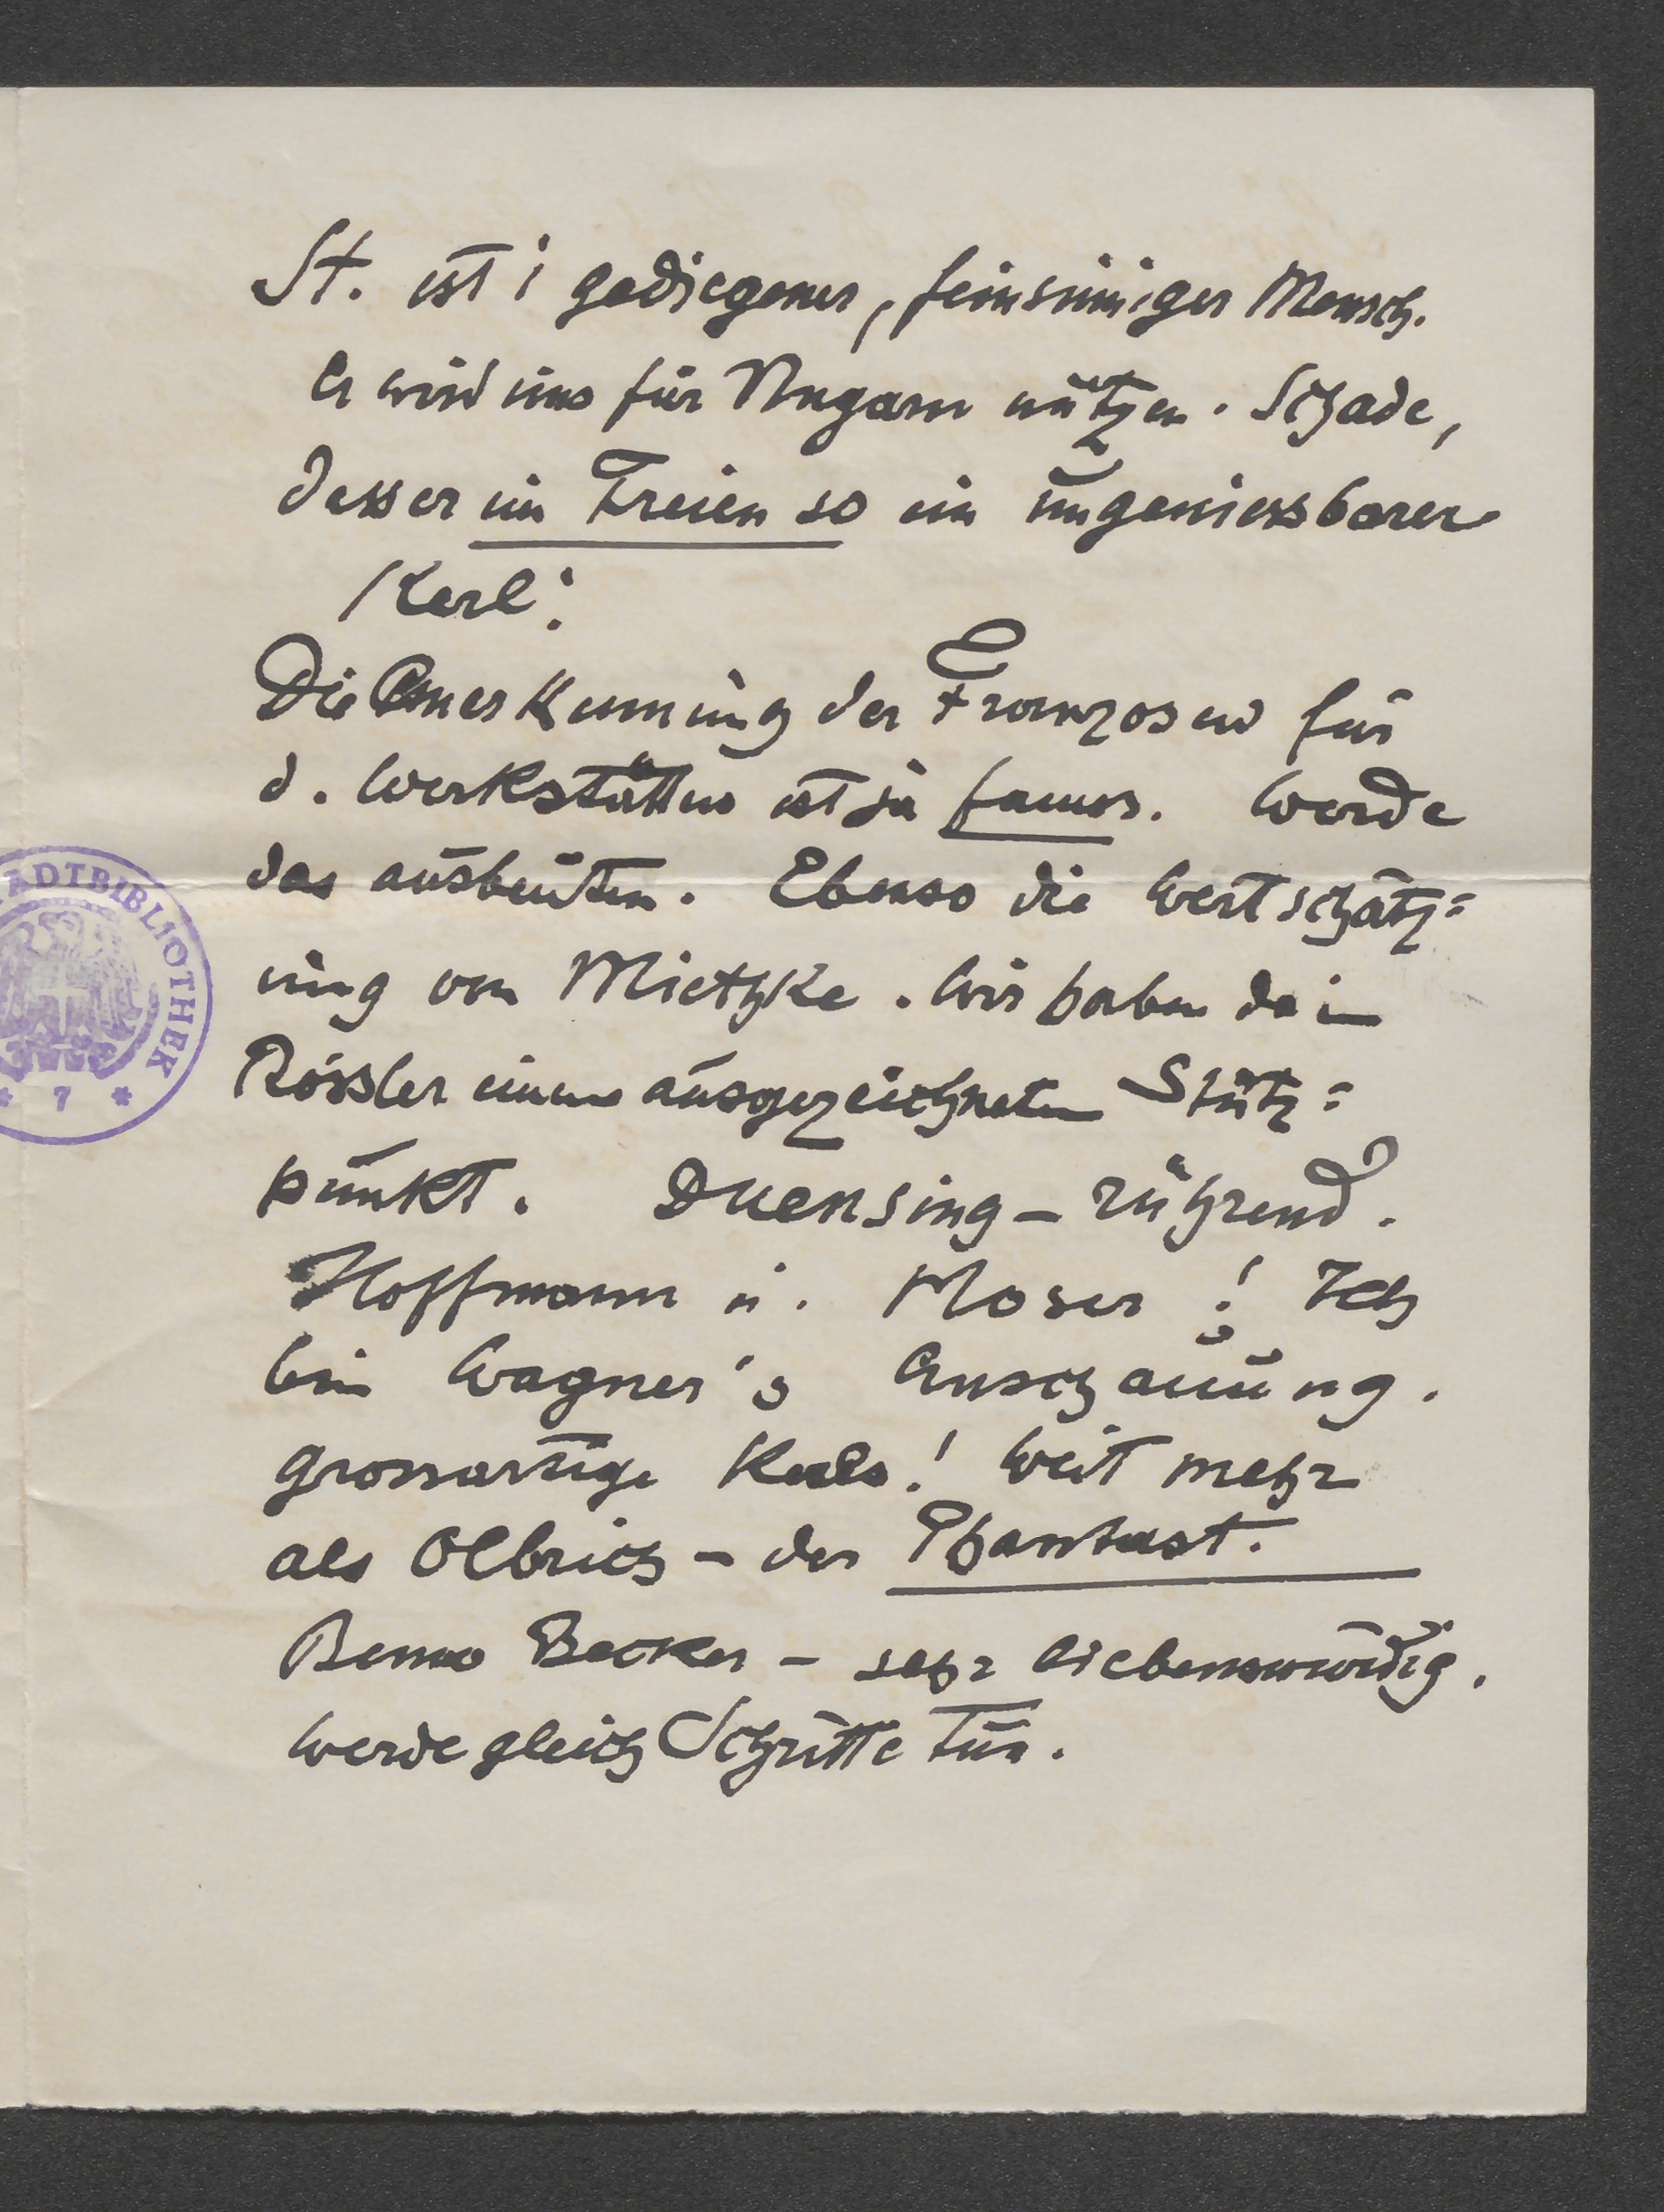 St. ist i gediegener, feinsinniger Mensch.
Er wird uns für Ungarn nützen. Schade,
dass er im Freien so ein ungeniessbarer
Kerl!
Die Anerkennung der Franzosen für
d. Werkstätten ist ja famos. Werde
das ausbeuten. Ebenso die Wertschätz=
ung von Miethke. Wir haben da in
Rössler einen ausgezeichneten Stütz=
punkt. Duensing – rührend.
Hoffmann u. Moser! Ich
bin Wagner's Anschauung.
grossartige Kerls! Weit mehr
als Olbrich – der Phantast.
Benno Becker – sehr liebenswürdig.
Werde gleich Schritte tun.
STADTBIBLIOTHEK
* 7 *